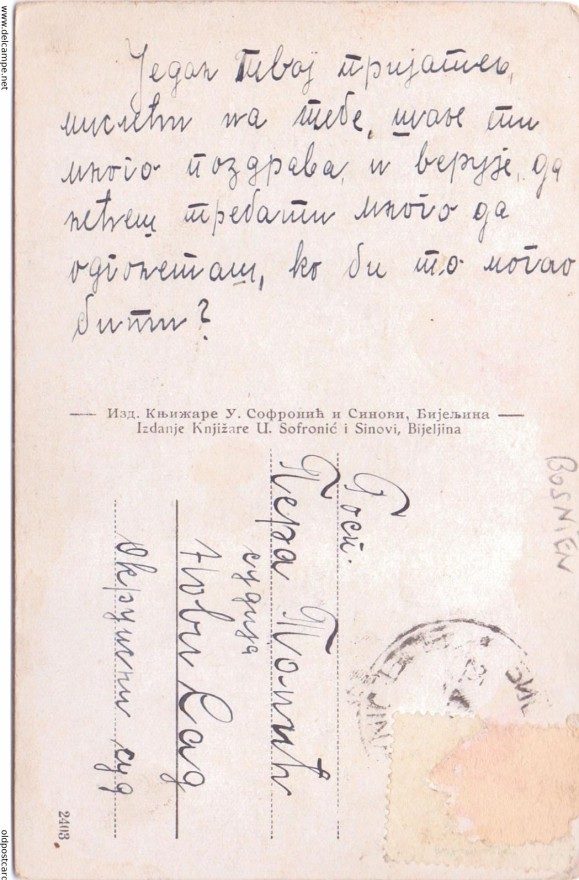 Један твој пријатељ,
мислећи на тебе, шаље ти
много поздрава, и верује, да
нећеш требати много да
одгонеташ, ко би то могао
бити?
Изд. Књижаре У. Софронић и Синови, Бијељина
Izdanje Knjižare U. Sofronić i Sinovi, Bijeljina
Госп.
Пера Толић
судија
Нови Сад
Окружни суд
BOSNIEN
2403
www.delcampe.net
oldpostcard